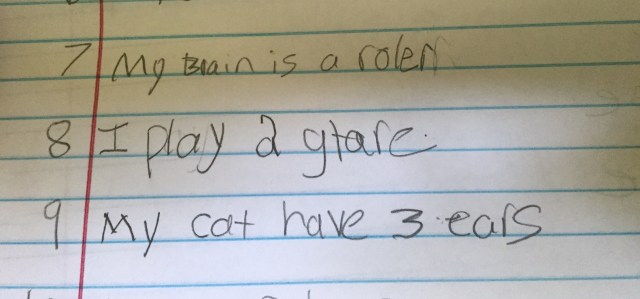 7 My Brain is a roler
8 I play a gtare.
9 My cat have 3 ears